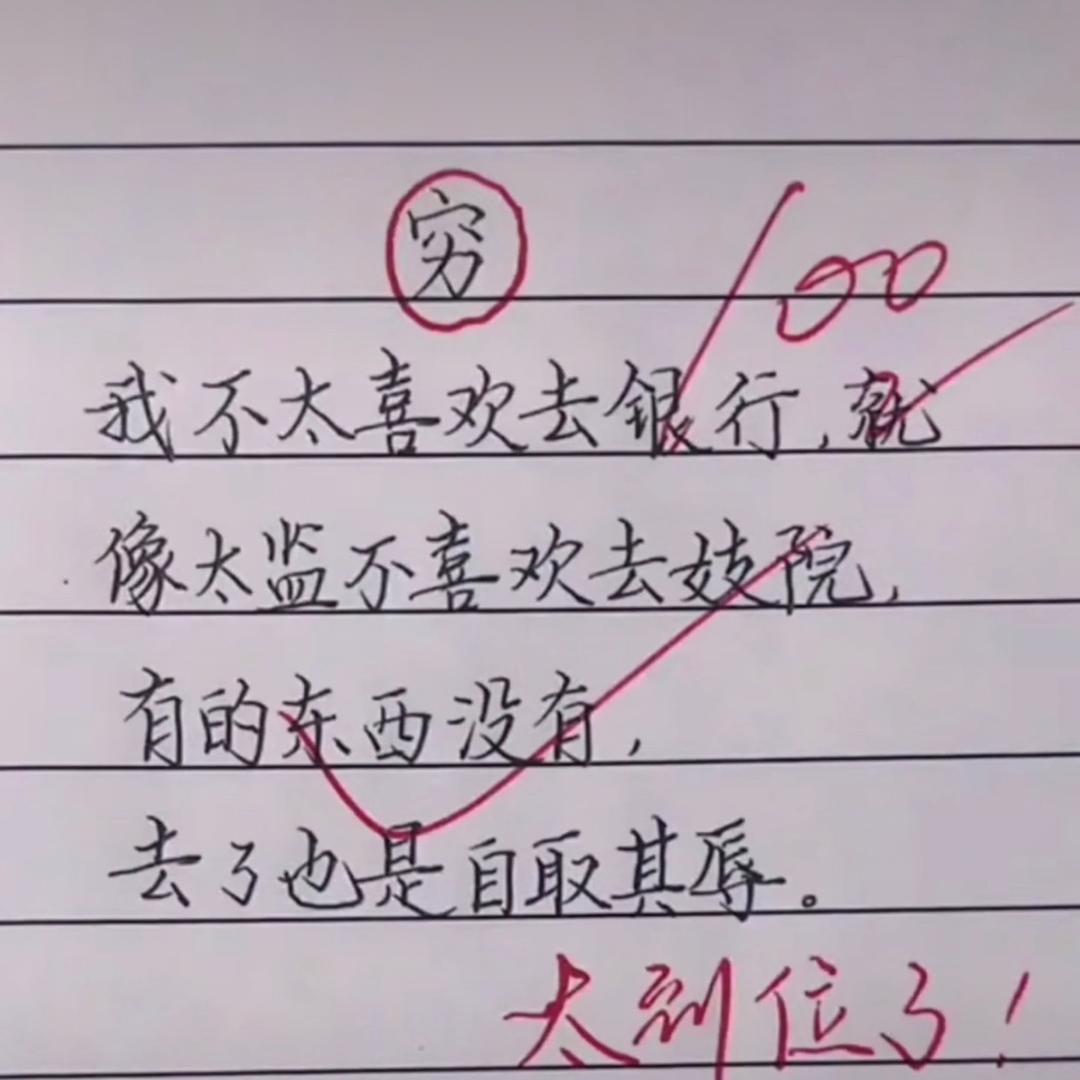 穷
100
我不太喜欢去银行，就
像太监不喜欢去妓院，
有的东西没有，
去了也是自取其辱。
太到位了！